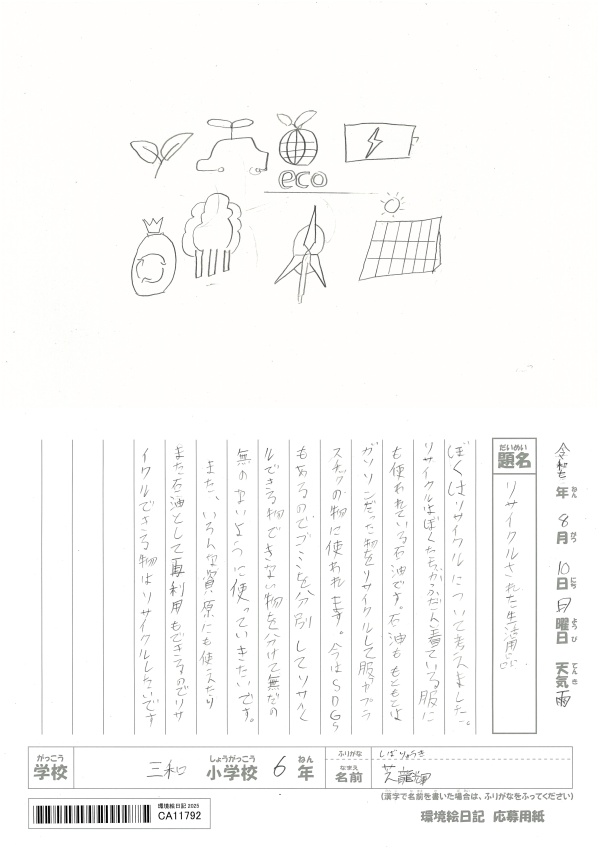 eco
令和七年 8月 10日 日曜日 天気 雨
ねん がつ にち ようび てんき
だいめい
題名
リサイクルされた生活用品
ぼくはリサイクルについて考えました。
リサイクルはぼくたちがふだん着ている服に
も使われている石油です。石油ももともとは
ガソリンだった物をリサイクルして服やプラ
スチックの物に使われます。今はSDGs
もあるのでゴミを分別してリサイク
ルできる物できない物を分けて無だの
無のないように使っていきたいです。
また、いろんな資原にも使えたり
また石油として再利用もできるのでリサ
イクルできる物はリサイクルしたいです
がっこう
学校
三和 小学校 6年
しょうがっこう ねん
ふりがな しばりゅうき
なまえ
名前 芝龍輝
(漢字で名前を書いた場合は、ふりがなをふってください)
環境絵日記 2025
CA11792
環境絵日記 応募用紙